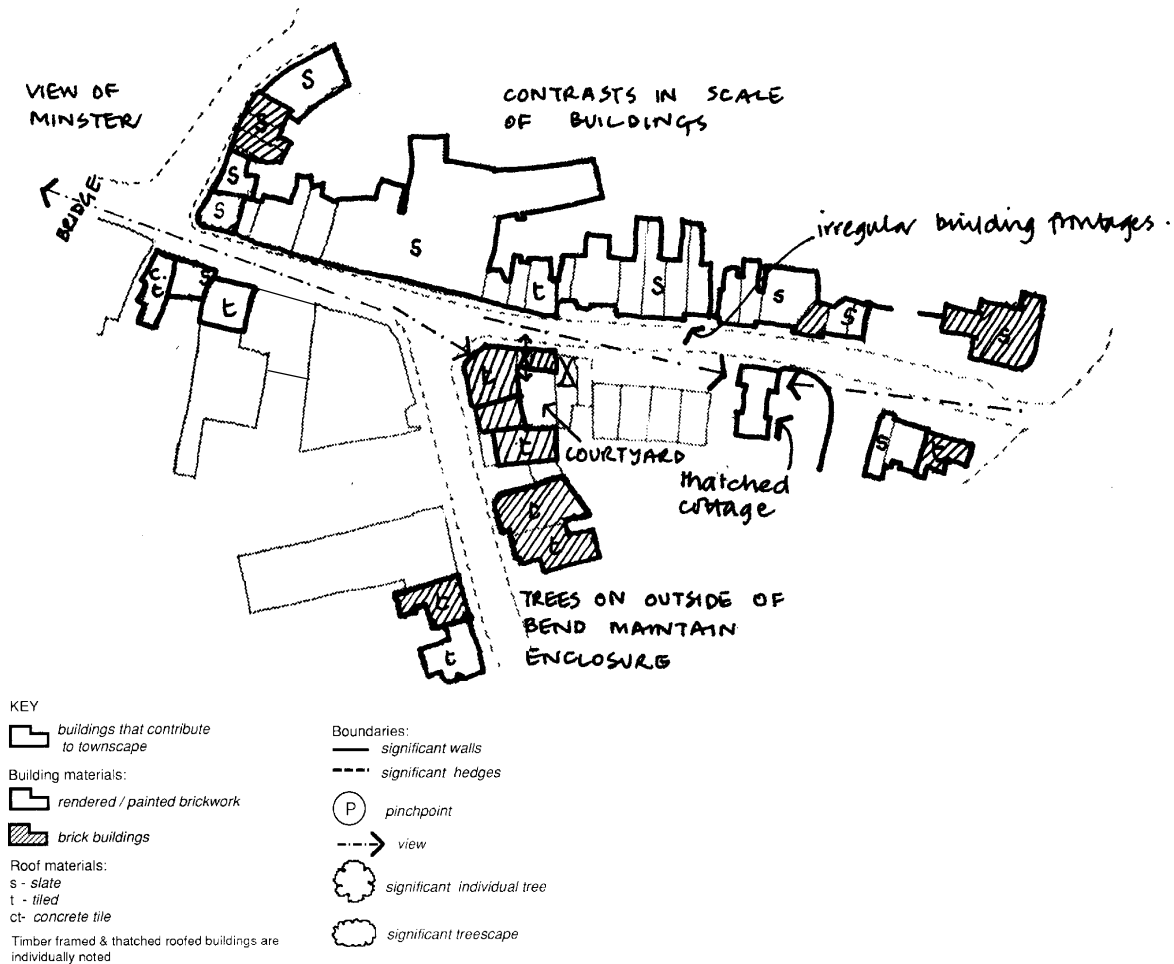 VIEW OF
MINSTER
CONTRASTS IN SCALE
OF BUILDINGS
BRIDGE
irregular building frontages.
S
S
S
S
S
c.
t
S
t
t
S
S
S
S
t
t
COURTYARD
thatched
cottage
S
t
t
t
t
t
TREES ON OUTSIDE OF
BEND MAINTAIN
ENCLOSURE
KEY
buildings that contribute
to townscape
Building materials:
rendered / painted brickwork
brick buildings
Roof materials:
s - slate
t - tiled
ct- concrete tile
Timber framed & thatched roofed buildings are
individually noted
Boundaries:
significant walls
significant hedges
P pinchpoint
view
significant individual tree
significant treescape